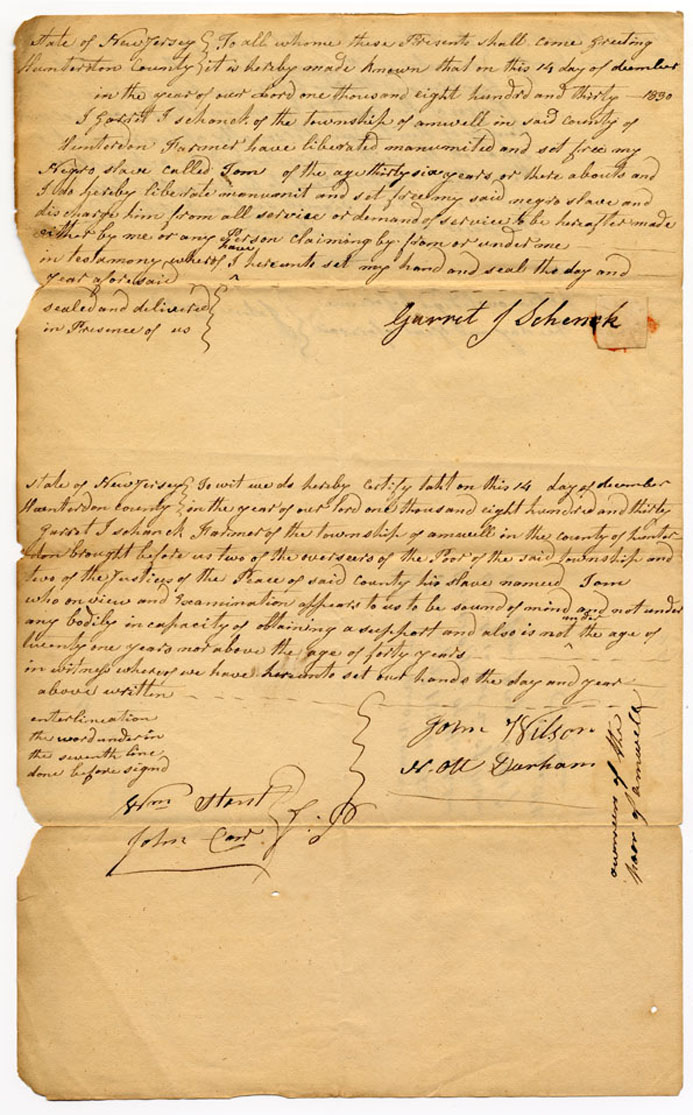 State of New Jersey { To all whome these Presents shall come Greeting
Hunterdon County { it is hereby made known that on this 14 day of december
in the year of our Lord one thousand eight hundred and thirty 1830
I Garret I schanck of the township of amwell in said County of
Hunterdon Farmer have liberated manumited and set free my
Negro slave called Tom of the age thirty six years or there abouts and
I do hereby liberate manumit and set free my said negro slave and
discharge him from all service or demand of service to be hereafter made
either by me or any Person claiming by from or under me
in testamony wherof I have hereunto set my hand and seal the day and
year aforesaid
sealed and delivered
in Presence of us
Garret J Schenck
State of New Jersey { To wit we do hereby Certify taht on this 14 day of december
Hunterdon county { in the year of our lord one thousand eight hundred and thirty
Garret I schanck Farmer of the township of amwell in the county of hunter
don brought before us two of the overseers of the Poor of the said township and
two of the Justices of the Peace of said county his slave named Tom
who on view and Examination appears to us to be sound of mind and not under
any bodily in capacity of obtaining a support and also is not under the age of
twenty one years nor above the age of forty years
in witness whereof we have hereunto set our hands the day and year
above written
enterlineation
the word under in
the seventh line
done before signd
John Wilson
N. Ott Durham
overseers of the
poor of amwell
Wm Stout
John Carr